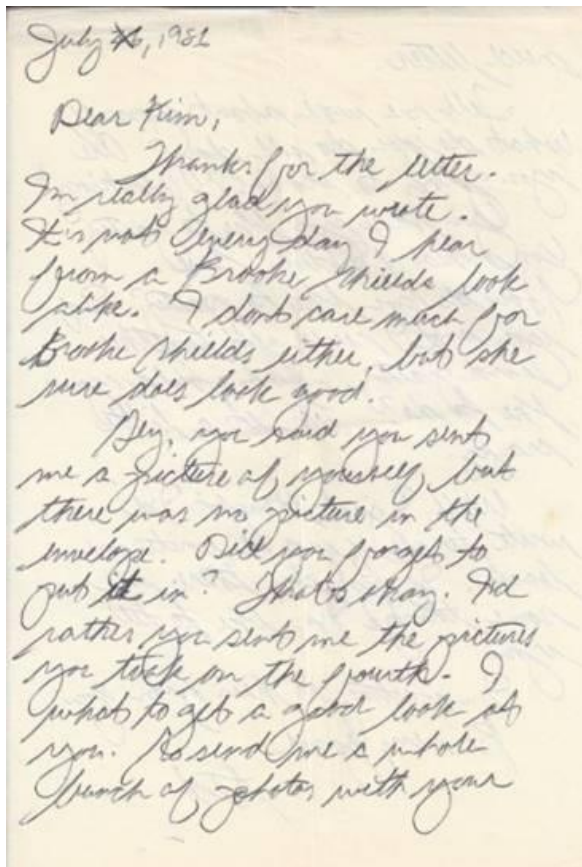 July 16, 1981
Dear Kim,
Thanks for the letter.
Im really glad you wrote.
It's not every day I hear
from a Brooke Shields look
alike. I dont care much for
Brooke Shields either, but she
sure does look good.
Hey, you said you sent
me a picture of yourself but
there was no picture in the
envelope. Did you forget to
put it in? That's okay. I'd
rather you sent me the pictures
you took on the fourth. I
what to get a good look at
you. So send me a whole
bunch of photos with your